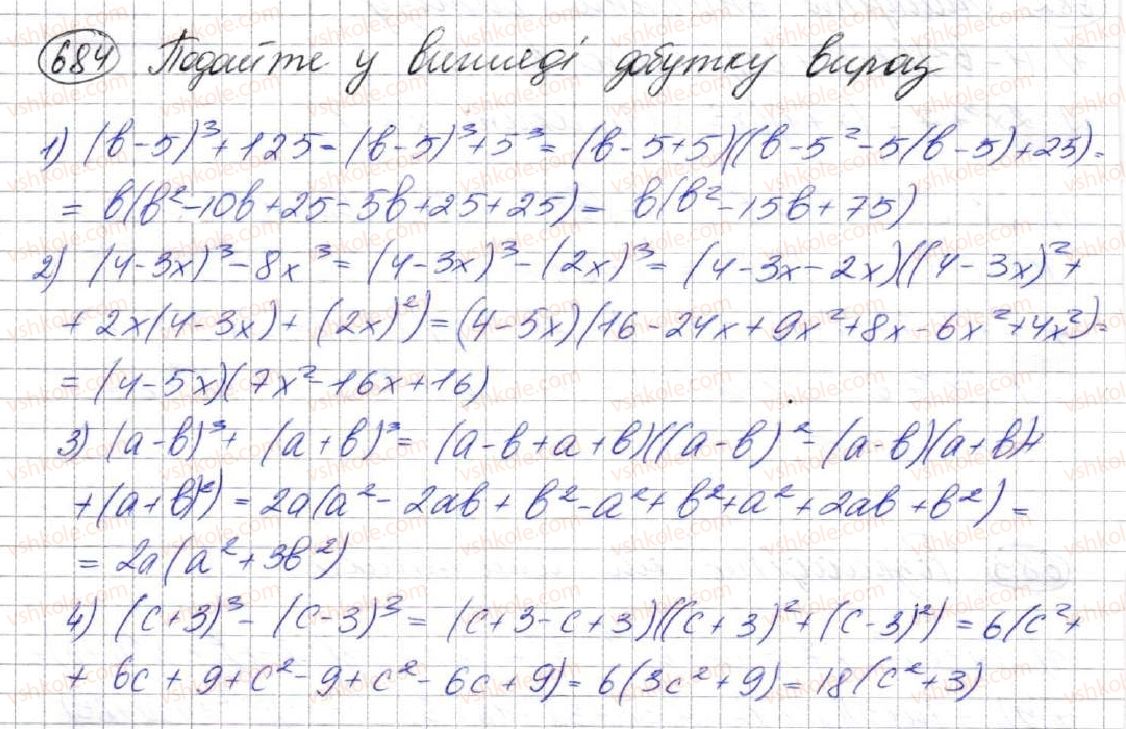 684 Подайте у вигляді добутку вираз
1) (в-5)³+125=(в-5)³+5³=(в-5+5)((в-5²-5(в-5)+25)=
= в(в²-10в+25-5в+25+25)= в(в²-15в+75)
2) (4-3x)³-8x³=(4-3x)³-(2x)³=(4-3x-2x)((4-3x)²+
+2x(4-3x)+(2x)²)=(4-5x)(16-24x+9x²+8x-6x²+4x²)=
=(4-5x)(7x²-16x+16)
3) (a-в)³+(a+в)³=(a-в+a+в)((a-в)²-(a-в)(a+в)+
+(a+в)²)=2a(a²-2aв+в²-a²+в²+a²+2aв+в²)=
=2a(a²+3в²)
4) (c+3)³-(c-3)³=(c+3-c+3)((c+3)²+(c-3)²)=6(c²+
+6c+9+c²-9+c²-6c+9)=6(3c²+9)=18(c²+3)